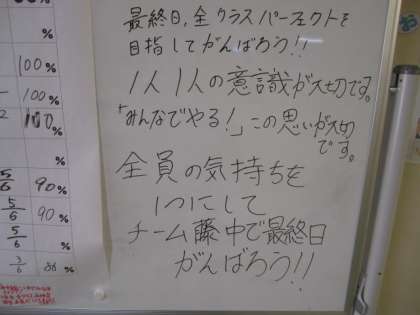 %
100%
100%
100%
5/6 90%
5/6 90%
5/6 %
3/6 86%
最終日,全クラスパーフェクトを
目指してがんばろう!!
1人1人の意識が大切です。
「みんなでやる!」この思いが大切
です。
全員の気持ちを
1つにして
チーム藤中で最終日
がんばろう!!